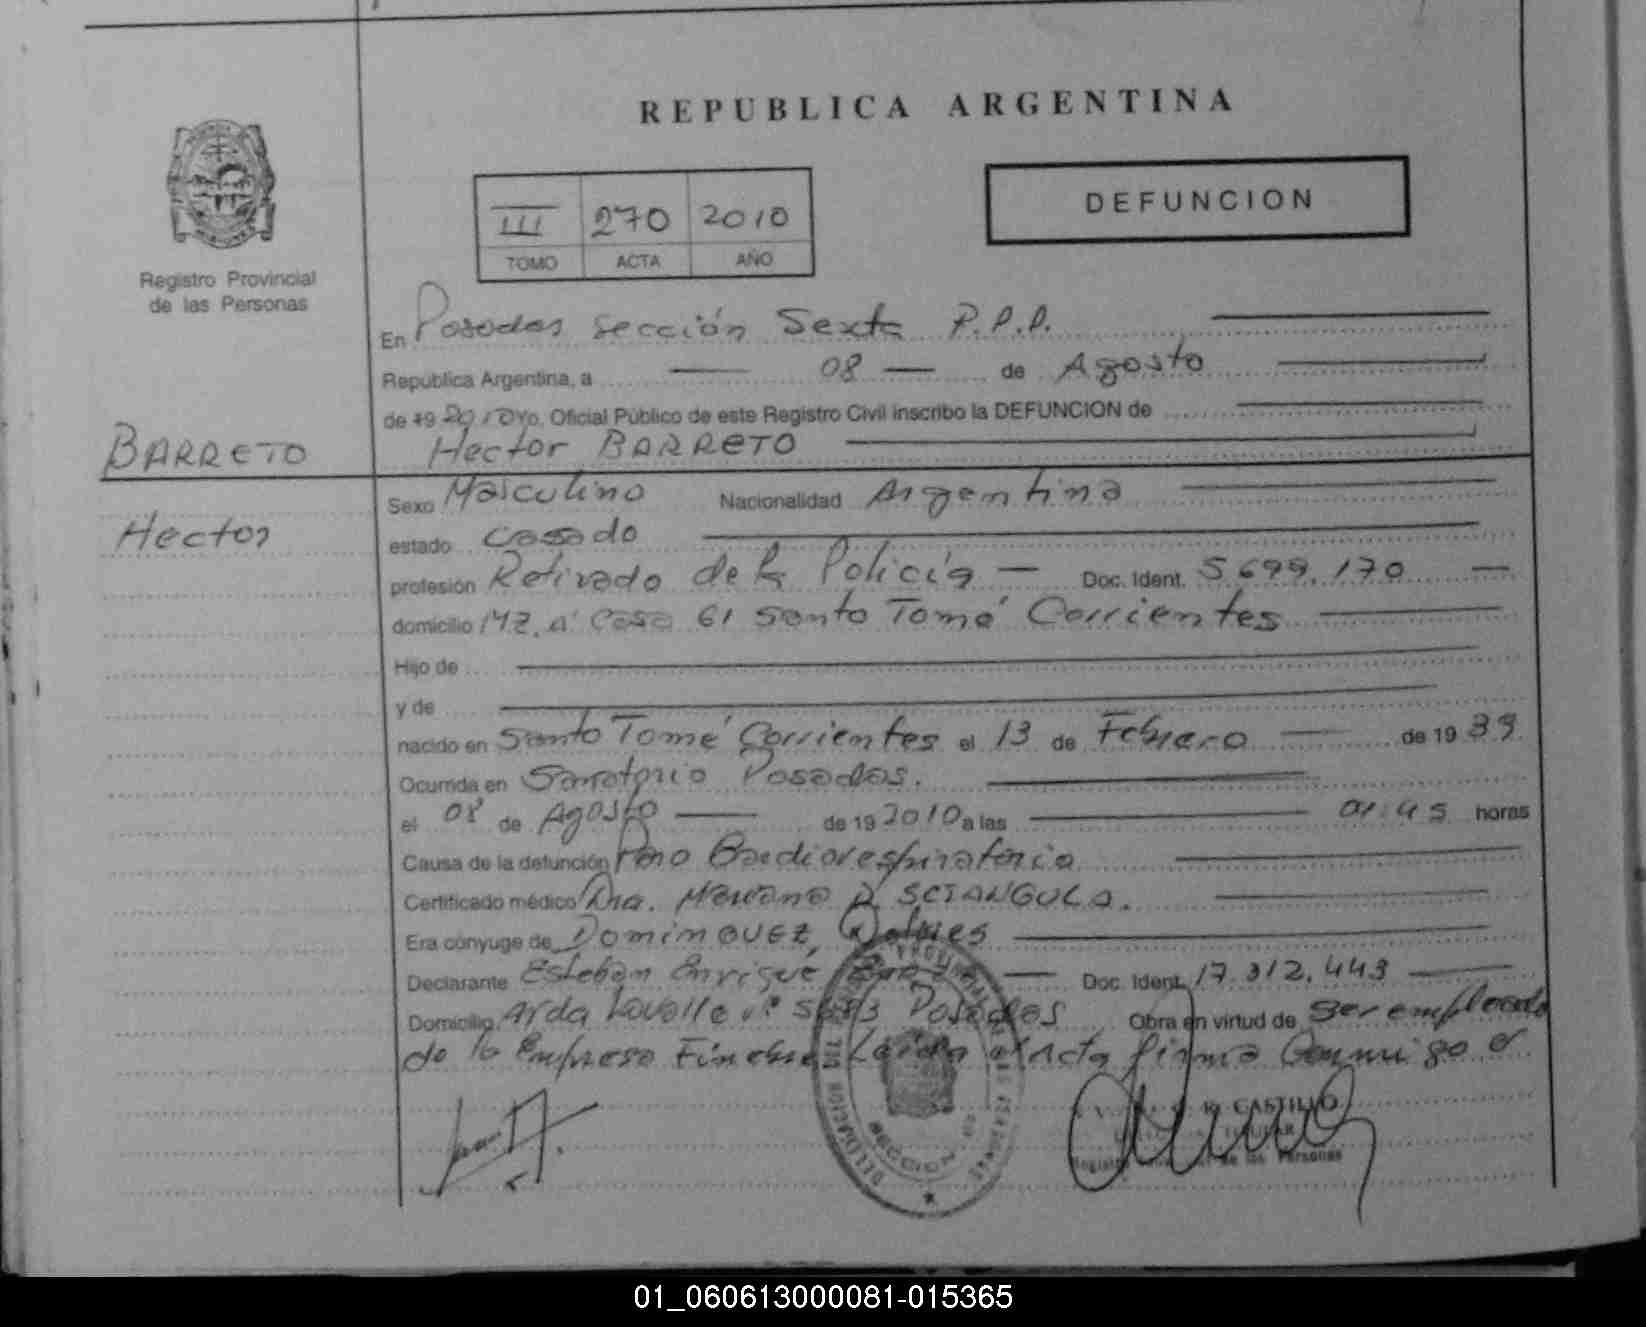 REPUBLICA ARGENTINA
DEFUNCION
III 270 2010
TOMO ACTA AÑO
Registro Provincial
de las Personas
En Posadas Sección Sexta P.P.P.
República Argentina, a 08 de Agosto
de 19 2010 Yo, Oficial Público de este Registro Civil inscribo la DEFUNCION de
BARRETO
Hector BARRETO
Hector
Sexo Masculino Nacionalidad Argentina
estado Casado
profesión Retirado de la Policía Doc. Ident. 5.699.170
domicilio 147. a Casa 61 Santo Tomé Corrientes
Hijo de
y de
nacido en Santo Tomé Corrientes el 13 de Febrero de 19 39
Ocurrida en Sanatorio Posadas.
el 08 de Agosto de 19 2010 a las 01:45 horas
Causa de la defunción Paro Cardiorespiratorio
Certificado médico Dra. Mariana SCIANGULA.
Era cónyuge de DOMINGUEZ,
Declarante Esteban Enrique Doc. Ident. 17.312.443
Domicilio Avda Lavalle Posadas Obra en virtud de ser empleado
de la Empresa Fúnebre Leída el Acta firma Conmigo el
DELEGACION
SECCION
CASTILLO
Personas
01_060613000081-015365